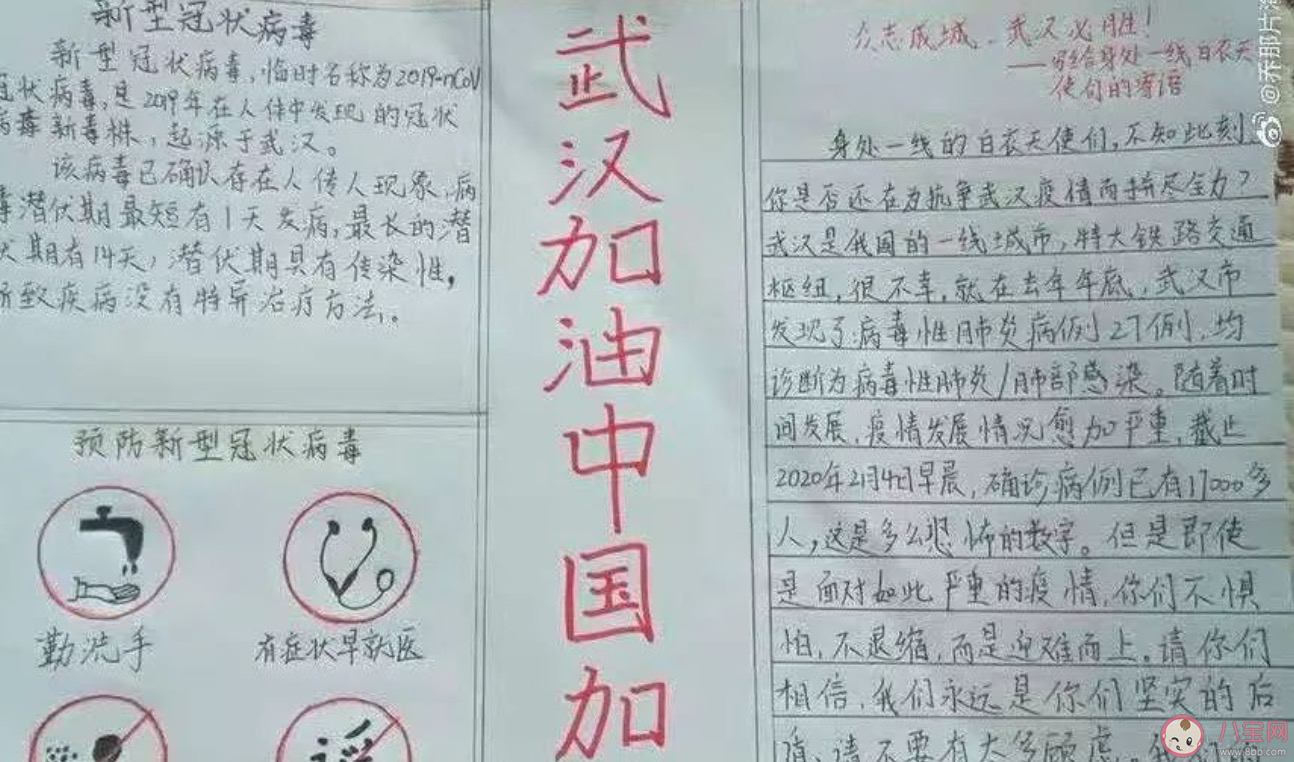 新型冠状病毒
新型冠状病毒,临时名称为2019-nCoV
冠状病毒,是2019年在人体中发现的冠状
病毒新毒株,起源于武汉。
该病毒已确认存在人传人现象,病
毒潜伏期最短有1天发病,最长的潜
伏期有14天,潜伏期具有传染性,
所致疾病没有特异治疗方法。
预防新型冠状病毒
勤洗手
有症状早就医
武
汉
加
油
中
国
加
众志成城、武汉必胜!
——写给身处一线白衣天
使们的寄语
身处一线的白衣天使们,不知此刻
你是否还在为抗争武汉疫情而拼尽全力?
武汉是我国的一线城市,特大铁路交通
枢纽,很不幸,就在去年年底,武汉市
发现了病毒性肺炎病例27例,均
诊断为病毒性肺炎/肺部感染。随着时
间发展,疫情发展情况愈加严重,截止
2020年2月4日早晨,确诊病例已有17000多
人,这是多么恐怖的数字。但是即使
是面对如此严重的疫情,你们不惧
怕,不退缩,而是迎难而上。请你们
相信,我们永远是你们坚实的后
请不要有太多顾虑。我们
@乔那片海
八宝网
www.8bb.com